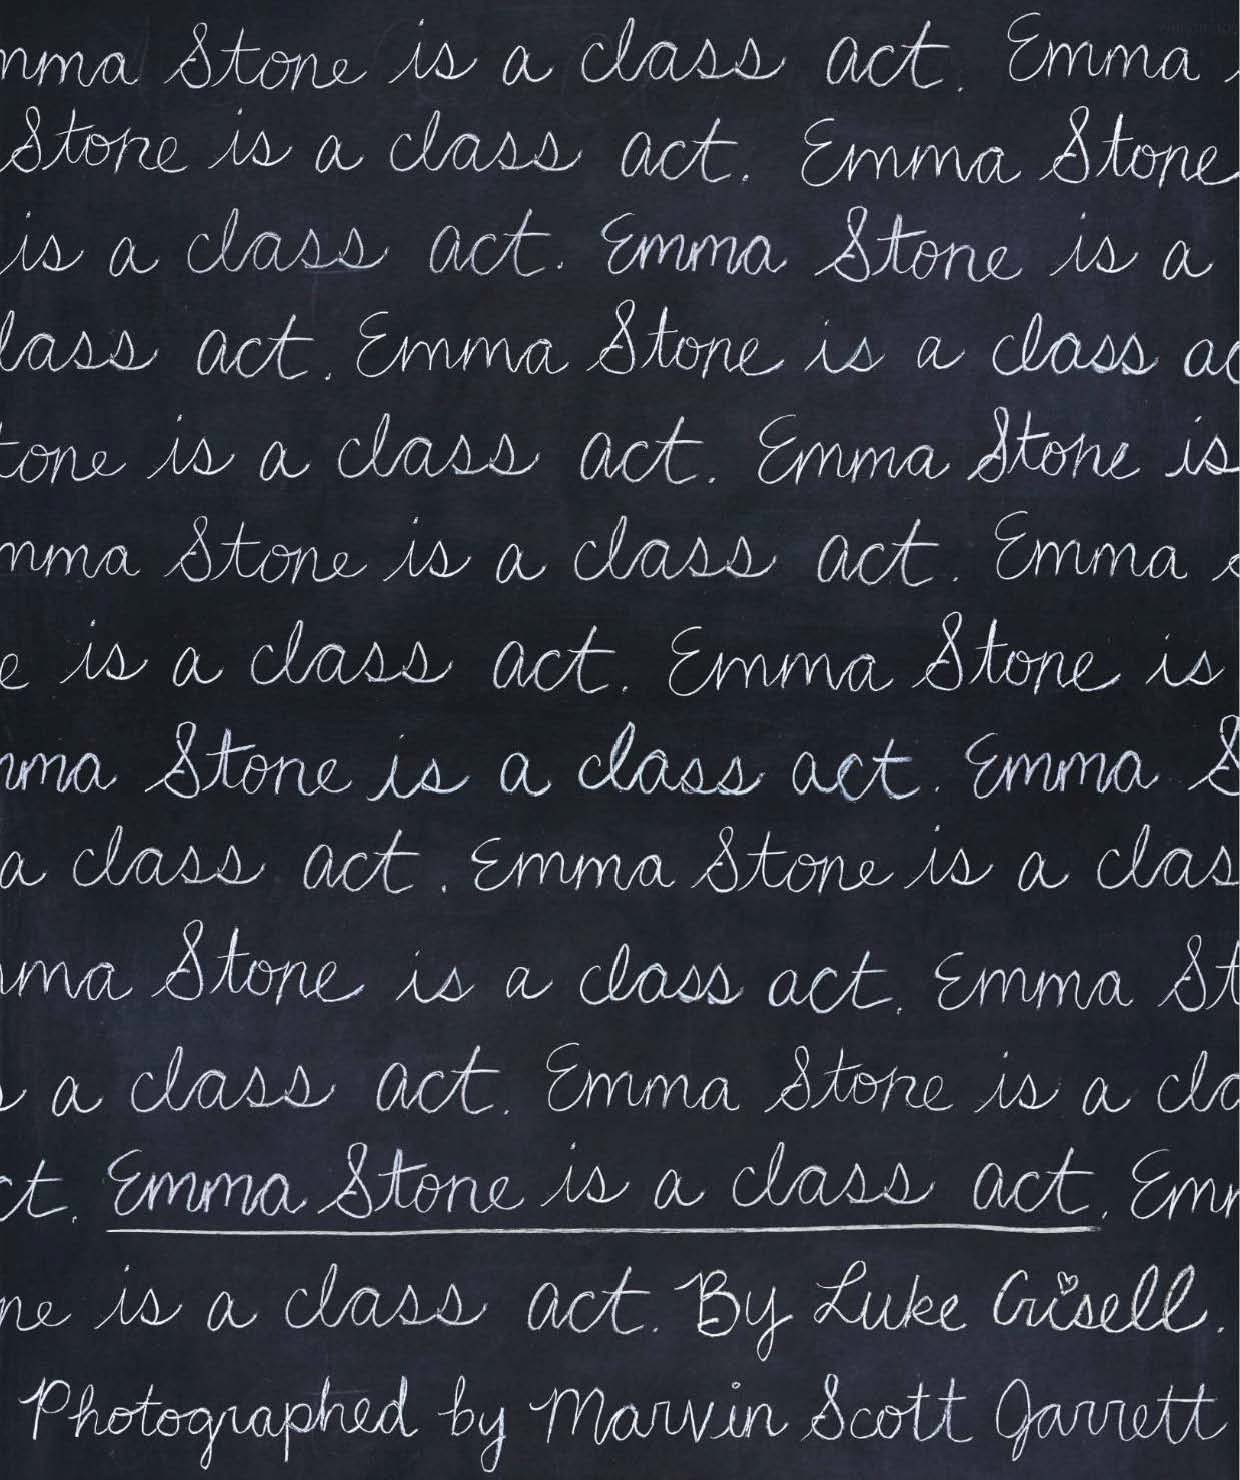 mma Stone is a class act. Emma
Stone is a class act. Emma Stone
is a class act. Emma Stone is a
lass act. Emma Stone is a class ac
tone is a class act. Emma Stone is
mma Stone is a class act. Emma
e is a class act. Emma Stone is
mma Stone is a class act. Emma S
a class act. Emma Stone is a clas
mma Stone is a class act. Emma St
s a class act. Emma Stone is a cla
ct. Emma Stone is a class act. Emm
ne is a class act. By Luke Crisell.
Photographed by Marvin Scott Jarrett